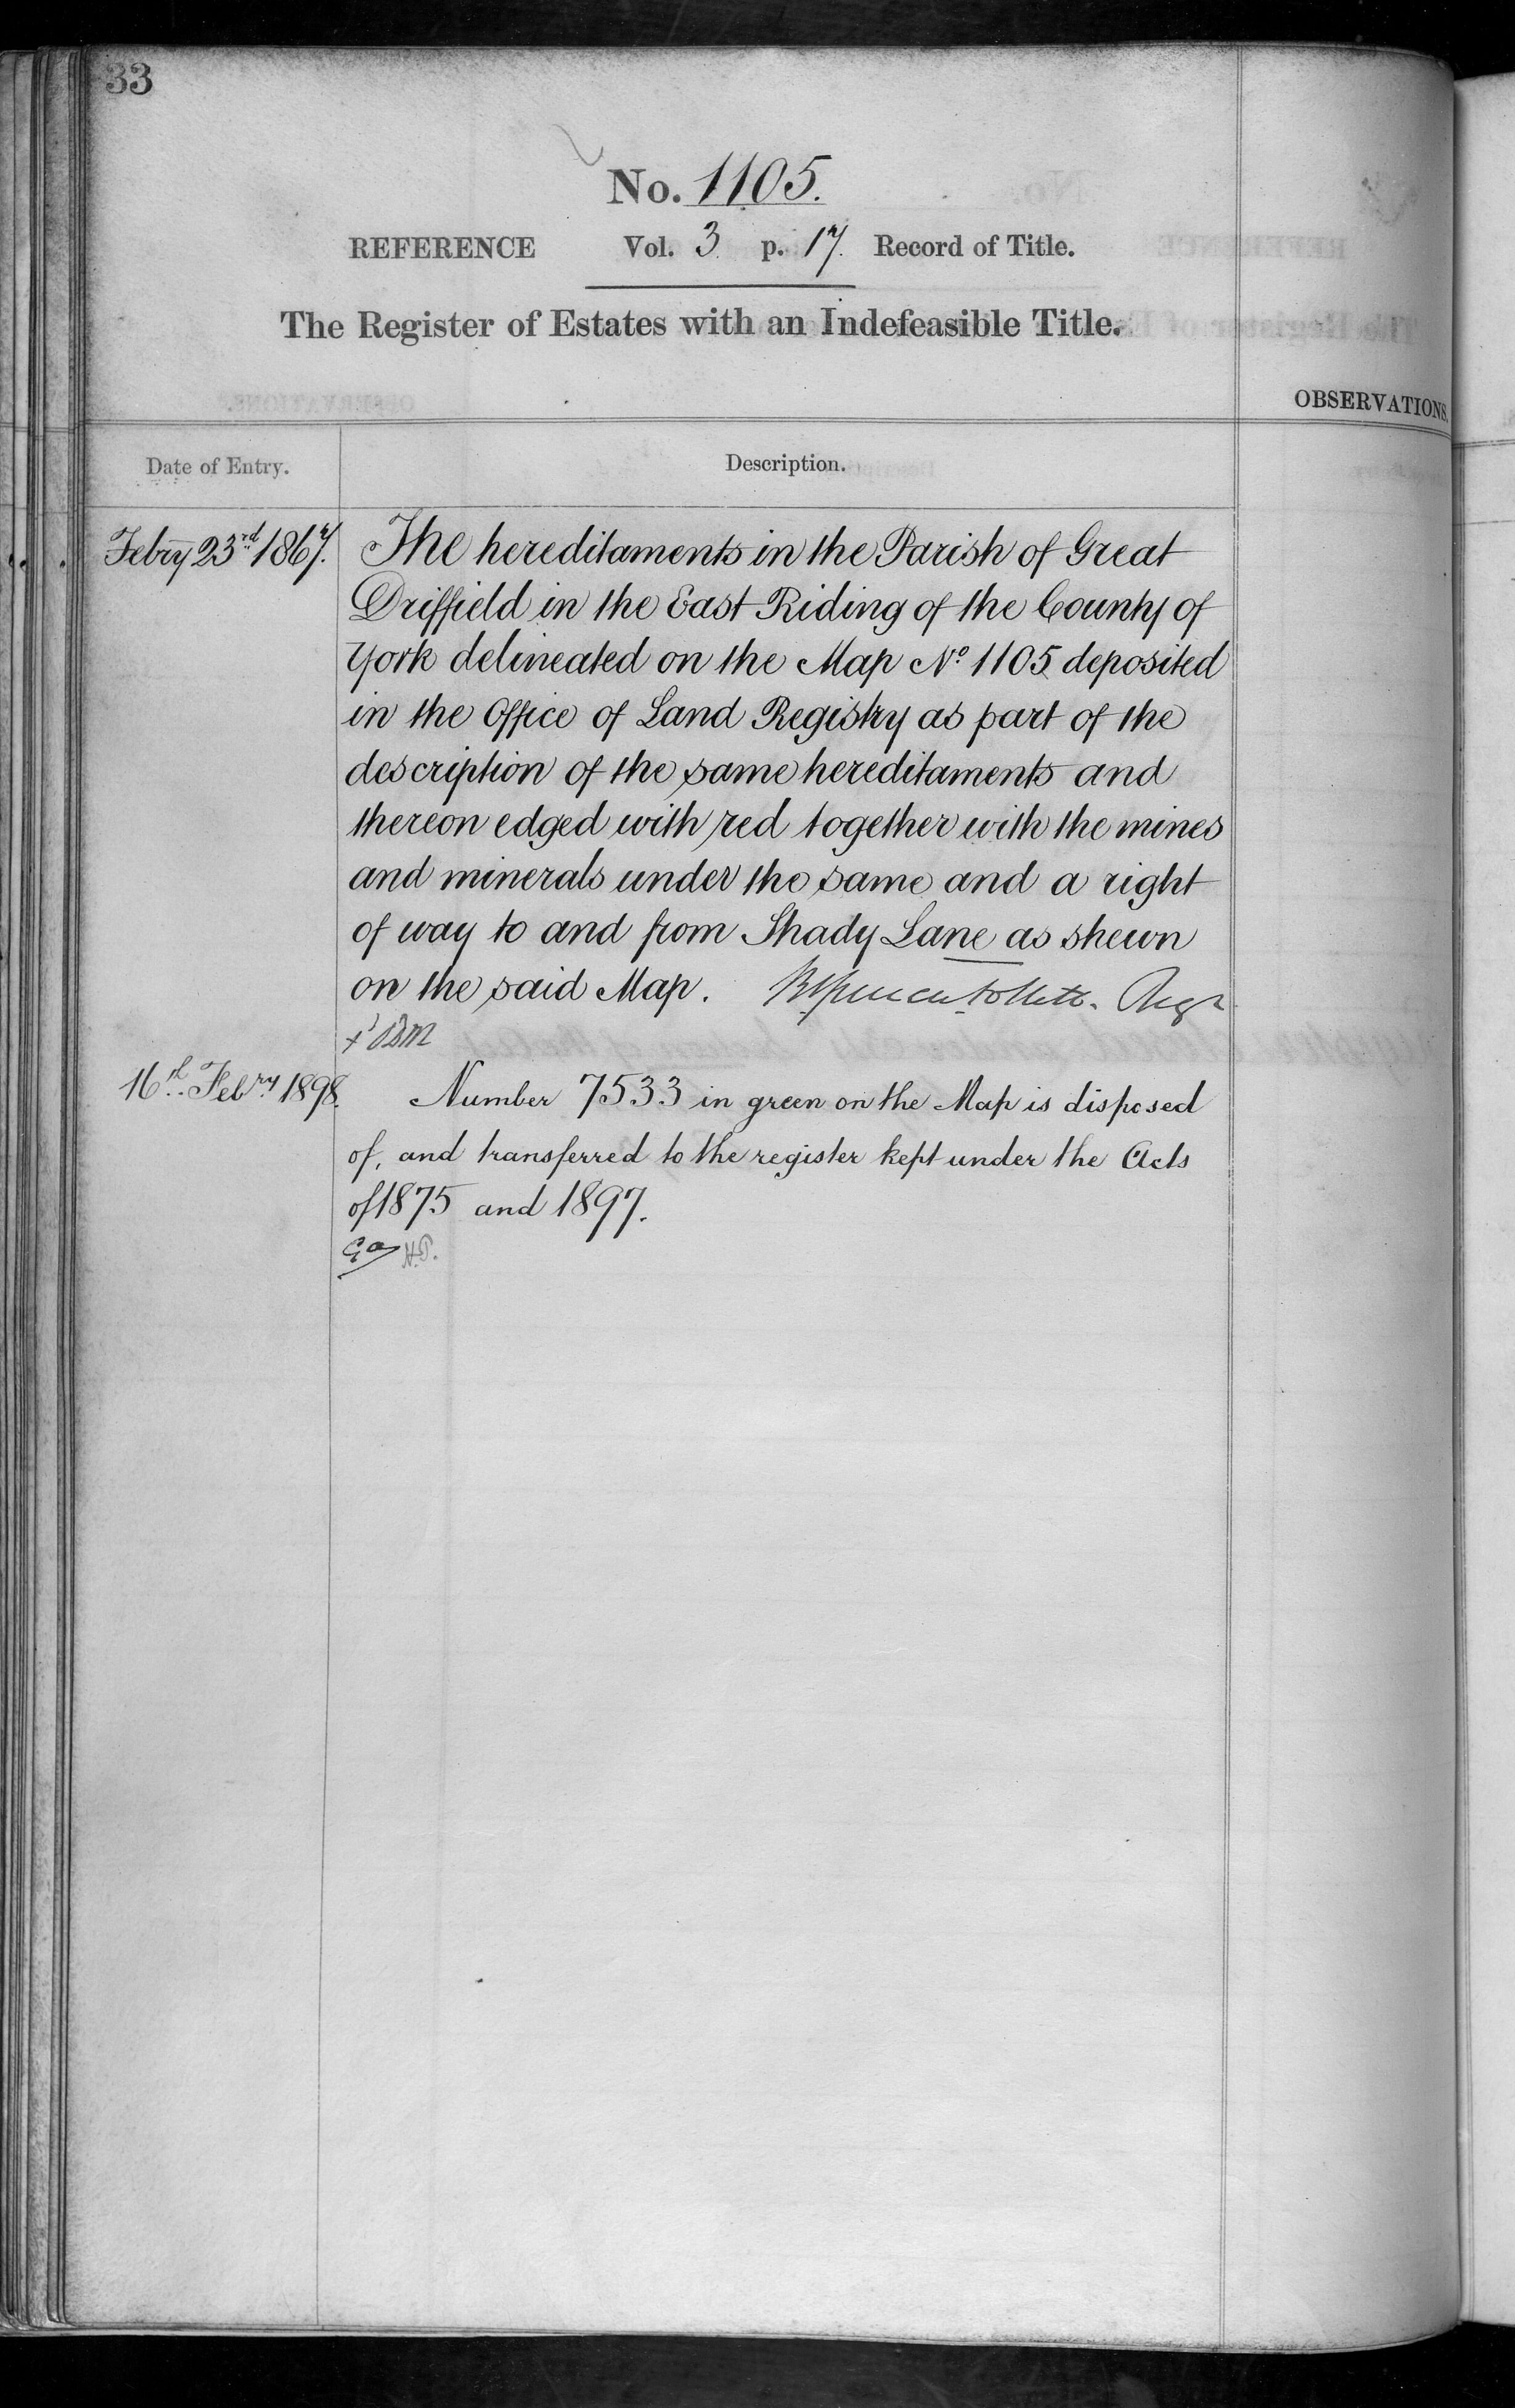 33
No. 1105.
REFERENCE Vol. 3 p. 17. Record of Title.
The Register of Estates with an Indefeasible Title.
OBSERVATIONS.
Date of Entry. Description.
Febry 23rd 1867. The hereditaments in the Parish of Great
Driffield in the East Riding of the County of
York delineated on the Map No 1105 deposited
in the Office of Land Registry as part of the
description of the same hereditaments and
thereon edged with red together with the mines
and minerals under the same and a right
of way to and from Shady Lane as shewn
on the said Map. Regr
16th Febry 1898. Number 7533 in green on the Map is disposed
of, and transferred to the register kept under the Acts
of 1875 and 1897.
H.P.